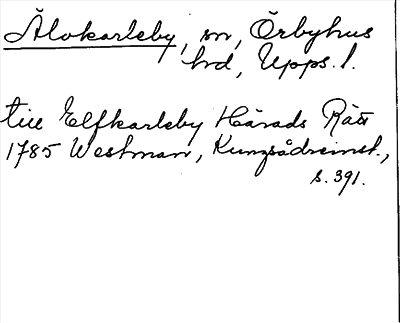 Älvkarleby, sn, Örbyhus
hd, Upps. l.
till Elfkarleby Härads Rätt
1785 Westman, Kungsådreinst.,
s. 391.